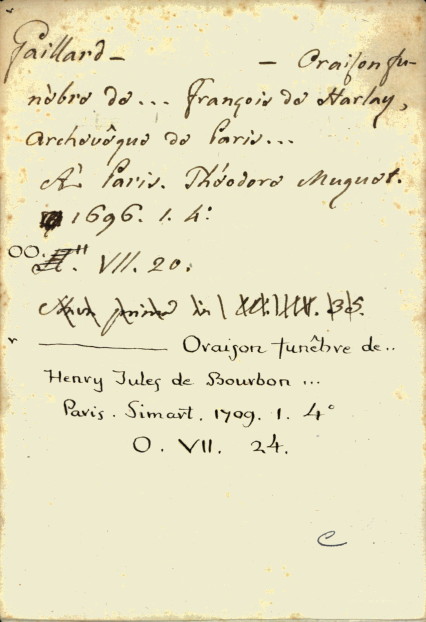 Gaillard – – Oraison fu-
nèbre de... François de Harlay,
Archevêque de Paris...
A Paris. Théodore Muguet.
1696. 1. 4°
OO. VII. 20.
——— Oraison funèbre de..
Henry Jules de Bourbon ...
Paris. Simart. 1709. 1. 4°
O. VII. 24.
C